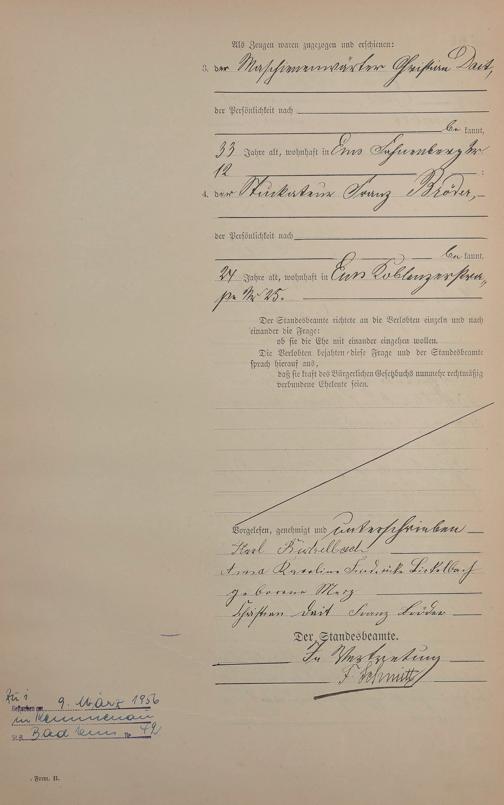 Als Zeugen waren zugezogen und erschienen:
3. der Maschinenwärter Christian Dait,
der Persönlichkeit nach
be kannt,
33 Jahre alt, wohnhaft in Ems
12
4. der Stuckateur Franz Bröder,
der Persönlichkeit nach
be kannt,
24 Jahre alt, wohnhaft in Ems Koblenzerstra„
ße Nr 25.
Der Standesbeamte richtete an die Verlobten einzeln und nach
einander die Frage:
ob sie die Ehe mit einander eingehen wollen.
Die Verlobten bejahten diese Frage und der Standesbeamte
sprach hierauf aus,
daß sie kraft des Bürgerlichen Gesetzbuchs nunmehr rechtmäßig
verbundene Eheleute seien.
Vorgelesen, genehmigt und unterschrieben
Karl Bickelbach
Anna Karoline Bickelbach
geborene Merz
Christian Dait Franz Bröder
Der Standesbeamte.
In Vertretung
F. Schmitt
Zu 1
9. März 1956
in Kemmenau
Bad Ems Nr. 42
Form. B.